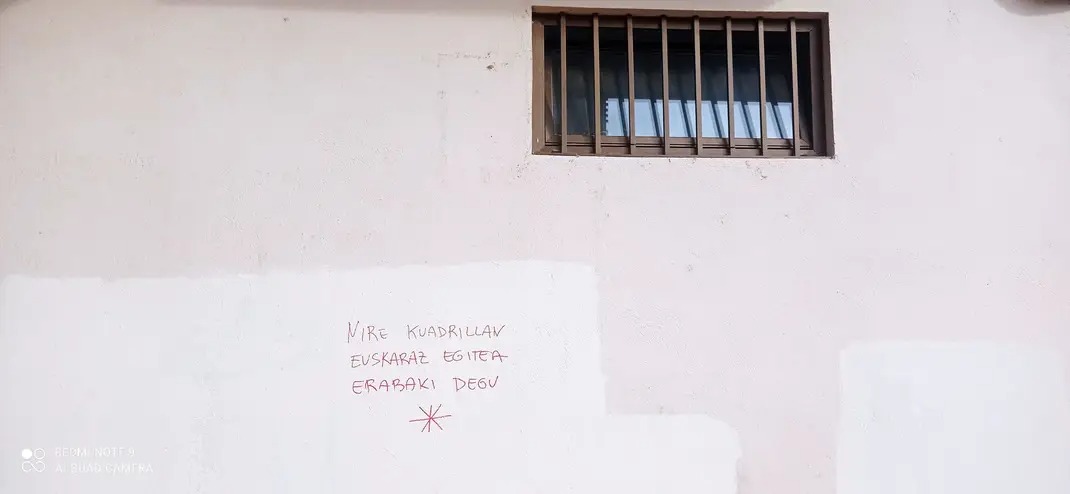 NIRE KUADRILLAN
EUSKARAZ EGITEA
ERABAKI DEGU
REDMI NOTE 9
AI QUAD CAMERA